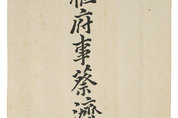 府事蔡濟